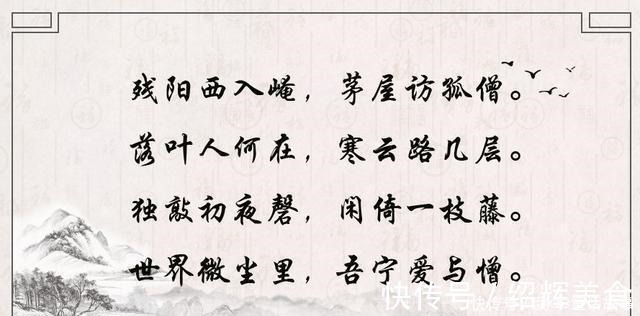 残阳西入崦，茅屋访孤僧。
落叶人何在，寒云路几层。
独敲初夜磬，闲倚一枝藤。
世界微尘里，吾宁爱与憎。
快传号 / 绍辉美食